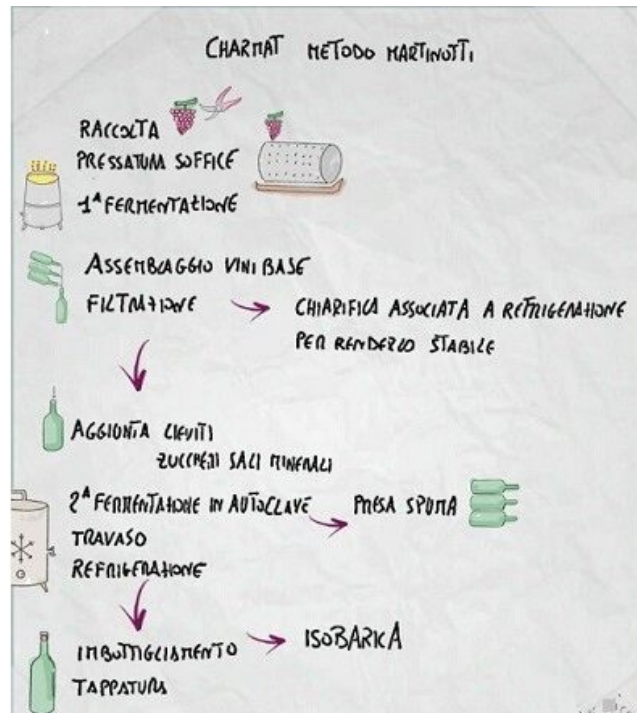 CHARMAT METODO MARTINOTTI
RACCOLTA
PRESSATURA SOFFICE
1ª FERMENTAZIONE
ASSEMBLAGGIO VINI BASE
FILTRAZIONE → CHIARIFICA ASSOCIATA A REFRIGERAZIONE
PER RENDERLO STABILE
AGGIONTA LIEVITI
ZUCCHERI SALI MINERALI
2ª FERMENTAZIONE IN AUTOCLAVE → PRESA SPUMA
TRAVASO
REFRIGERAZIONE
IMBOTTIGLIAMENTO → ISOBARICA
TAPPATURA